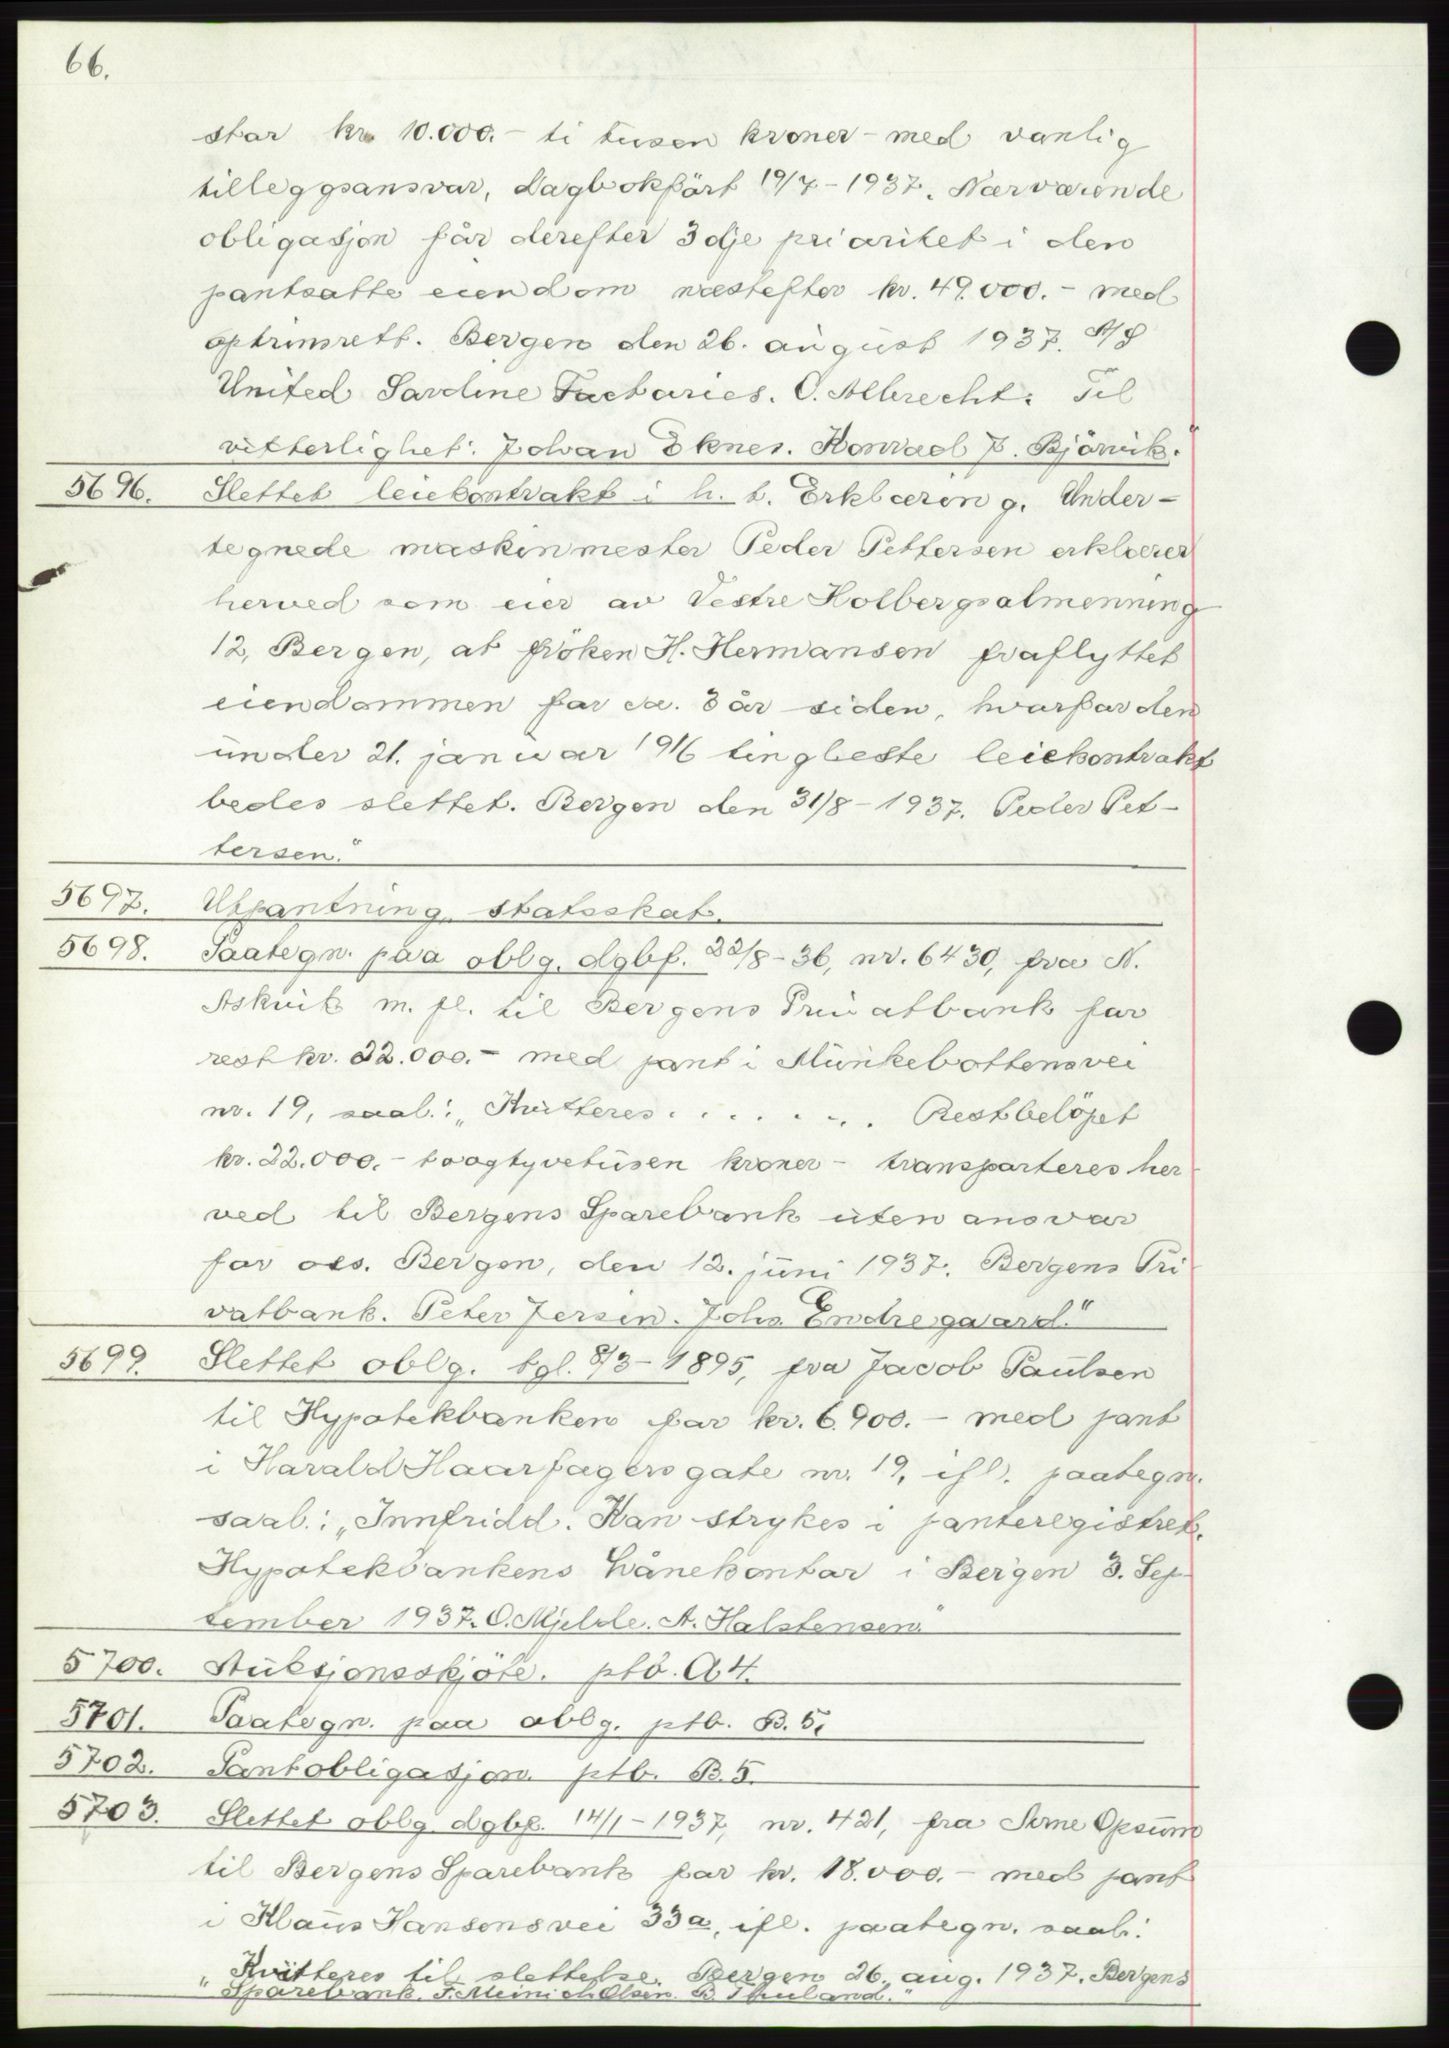 66.
stor kr. 10.000.- ti tusen kroner - med vanlig
tilleggsansvar, dagbokført 19/7-1937. Nærværende
obligasjon får derefter 3dje prioritet i den
pantsatte eiendom næstefter kr. 49.000.- med
optrinsrett. Bergen den 26. august 1937. A/S
United Sardine Factories. C. Albrecht. Til
vitterlighet: Johan Eknes. Konrad J. Björvik."
5696. Slettet leiekontrakt i h. t. Erklæring. Under-
tegnede maskinmester Peder Pettersen erklærer
herved som eier av Vestre Holbergsalmenning
12, Bergen, at fröken H. Hermansen fraflyttet
eiendommen for ca. 3 år siden, hvorfor den
under 21. januar 1916 tinglæste leiekontrakt
bedes slettet. Bergen den 31/8-1937. Peder Pet-
tersen."
5697. Utpantning, statsskat.
5698. Paategn. paa oblg. dgbf. 22/8-36, nr. 6430, fra N.
Askvik m. fl. til Bergens Privatbank for
rest kr. 22.000.- med pant i Munkebottensvei
nr. 19, saal.: „Kvitteres . . . . . . . Restbelöpet
kr. 22.000.- toogtyvetusen kroner - transporteres her
ved til Bergens Sparebank uten ansvar
for oss. Bergen, den 12. juni 1937. Bergens Pri
vatbank. Peter Jersin. Johs. Endregaard."
5699. Slettet oblg. tgl. 8/3-1895, fra Jacob Paulsen
til Hypotekbanken for kr. 6.900.- med pant
i Harald Haarfagersgate nr. 19, ifl. paategn.
saal.: „Innfridd. Kan strykes i panteregistret.
Hypotekbankens Lånekontor i Bergen 3. Sep-
tember 1937. O. Mjelde. A. Halstensen."
5700. Auksjonsskjöte. ptb. A4.
5701. Paategn. paa oblg. ptb. B. 5.
5702. Pantobligasjon. ptb. B. 5.
5703. Slettet oblg. dgbf. 14/1-1937, nr. 421, fra Arne Opsum
til Bergens Sparebank for kr. 18.000.- med pant
i Klaus Hansensvei 33a, ifl. paategn. saal.:
„Kvitteres til slettelse. Bergen 26. aug. 1937. Bergens
Sparebank. F. Meinich Olsen. B. Thuland."